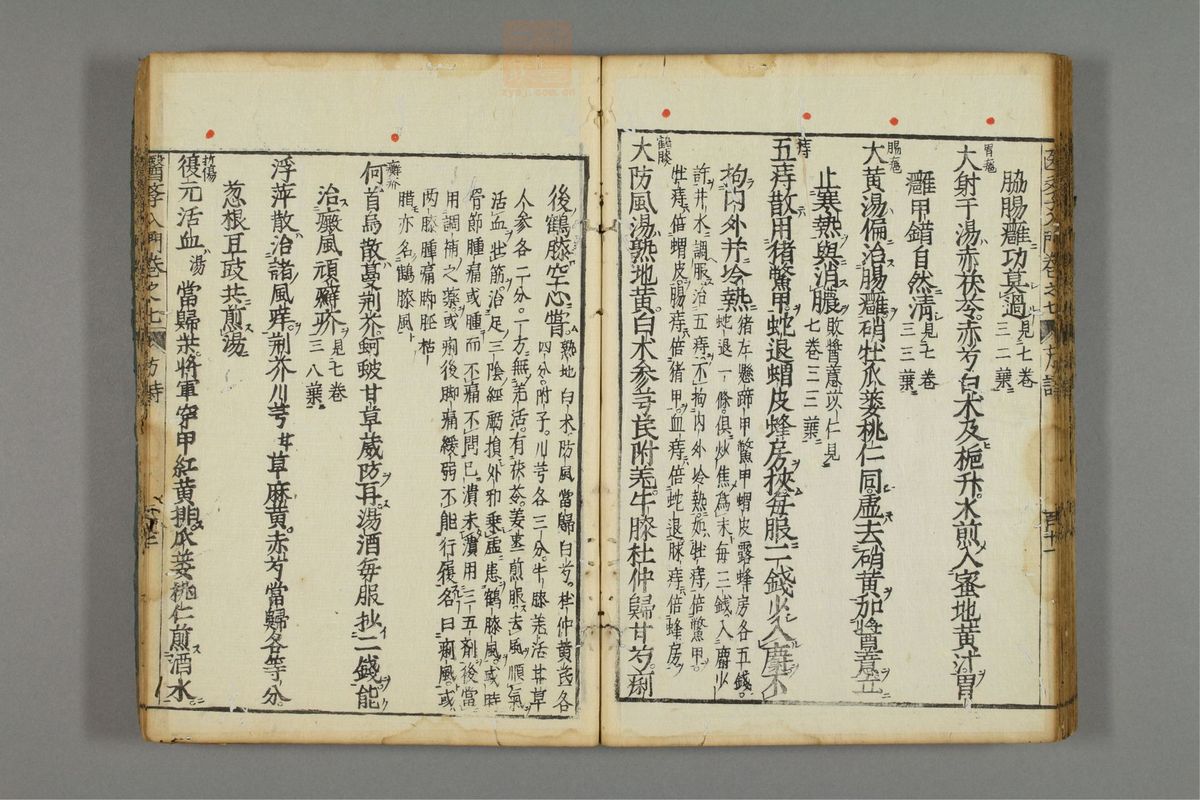 脇腸癰功莫過見七卷三二葉
胃癰
大射干湯赤茯苓赤芍白术及梔升水煎入蜜地黃汁胃
癰甲錯自然清見七卷三三葉
腸癰
大黃湯偏治腸癰硝牡瓜蔞桃仁同虛去硝黃加
止寒熱與消膿敗醬薏苡仁見七卷三三葉
痔
五痔散用猪鱉甲蛇退蝟皮蜂房挾每服二錢少入麝不
拘內外并冷熱猪左懸蹄甲鱉甲蝟皮露蜂房各五錢
蛇退一條俱炒焦為末每三錢入麝少
許井水調服治五痔不拘內外冷熱如牡痔倍鱉甲
牡痔倍蝟皮腸痔倍猪甲血痔倍蛇退脉痔倍蜂房
鶴膝
大防風湯熟地黃白术參芎芪附羌牛膝杜仲歸甘芍痢
後鶴膝空心嘗熟地白术防風當歸白芍杜仲黃芪各
四分附子川芎各三分牛膝羌活甘草
人參各二分一方無羌活有茯苓姜棗煎服去風順氣
活血壯筋治足三陰經虧損外邪乘虛患鶴膝風或時
骨節腫痛或腫而不痛不問已潰未潰用三五劑後當
用調補之藥或痢後脚痛緩弱不能行履名曰痢風或
两膝腫痛脚脛枯
腊亦名鶴膝風
癬疥
何首烏散蔓荊芥蚵蚾甘草葳防再湯酒每服抄二錢能
治癜風頑癬疥見七卷三八葉
浮萍散治諸風痒荊芥川芎甘草麻黃赤芍當歸各等分
葱根豆豉共煎湯
折傷
復元活血湯當歸柴將軍穿甲紅黃排瓜蔞桃仁煎酒水
醫學入門卷之七 方詩